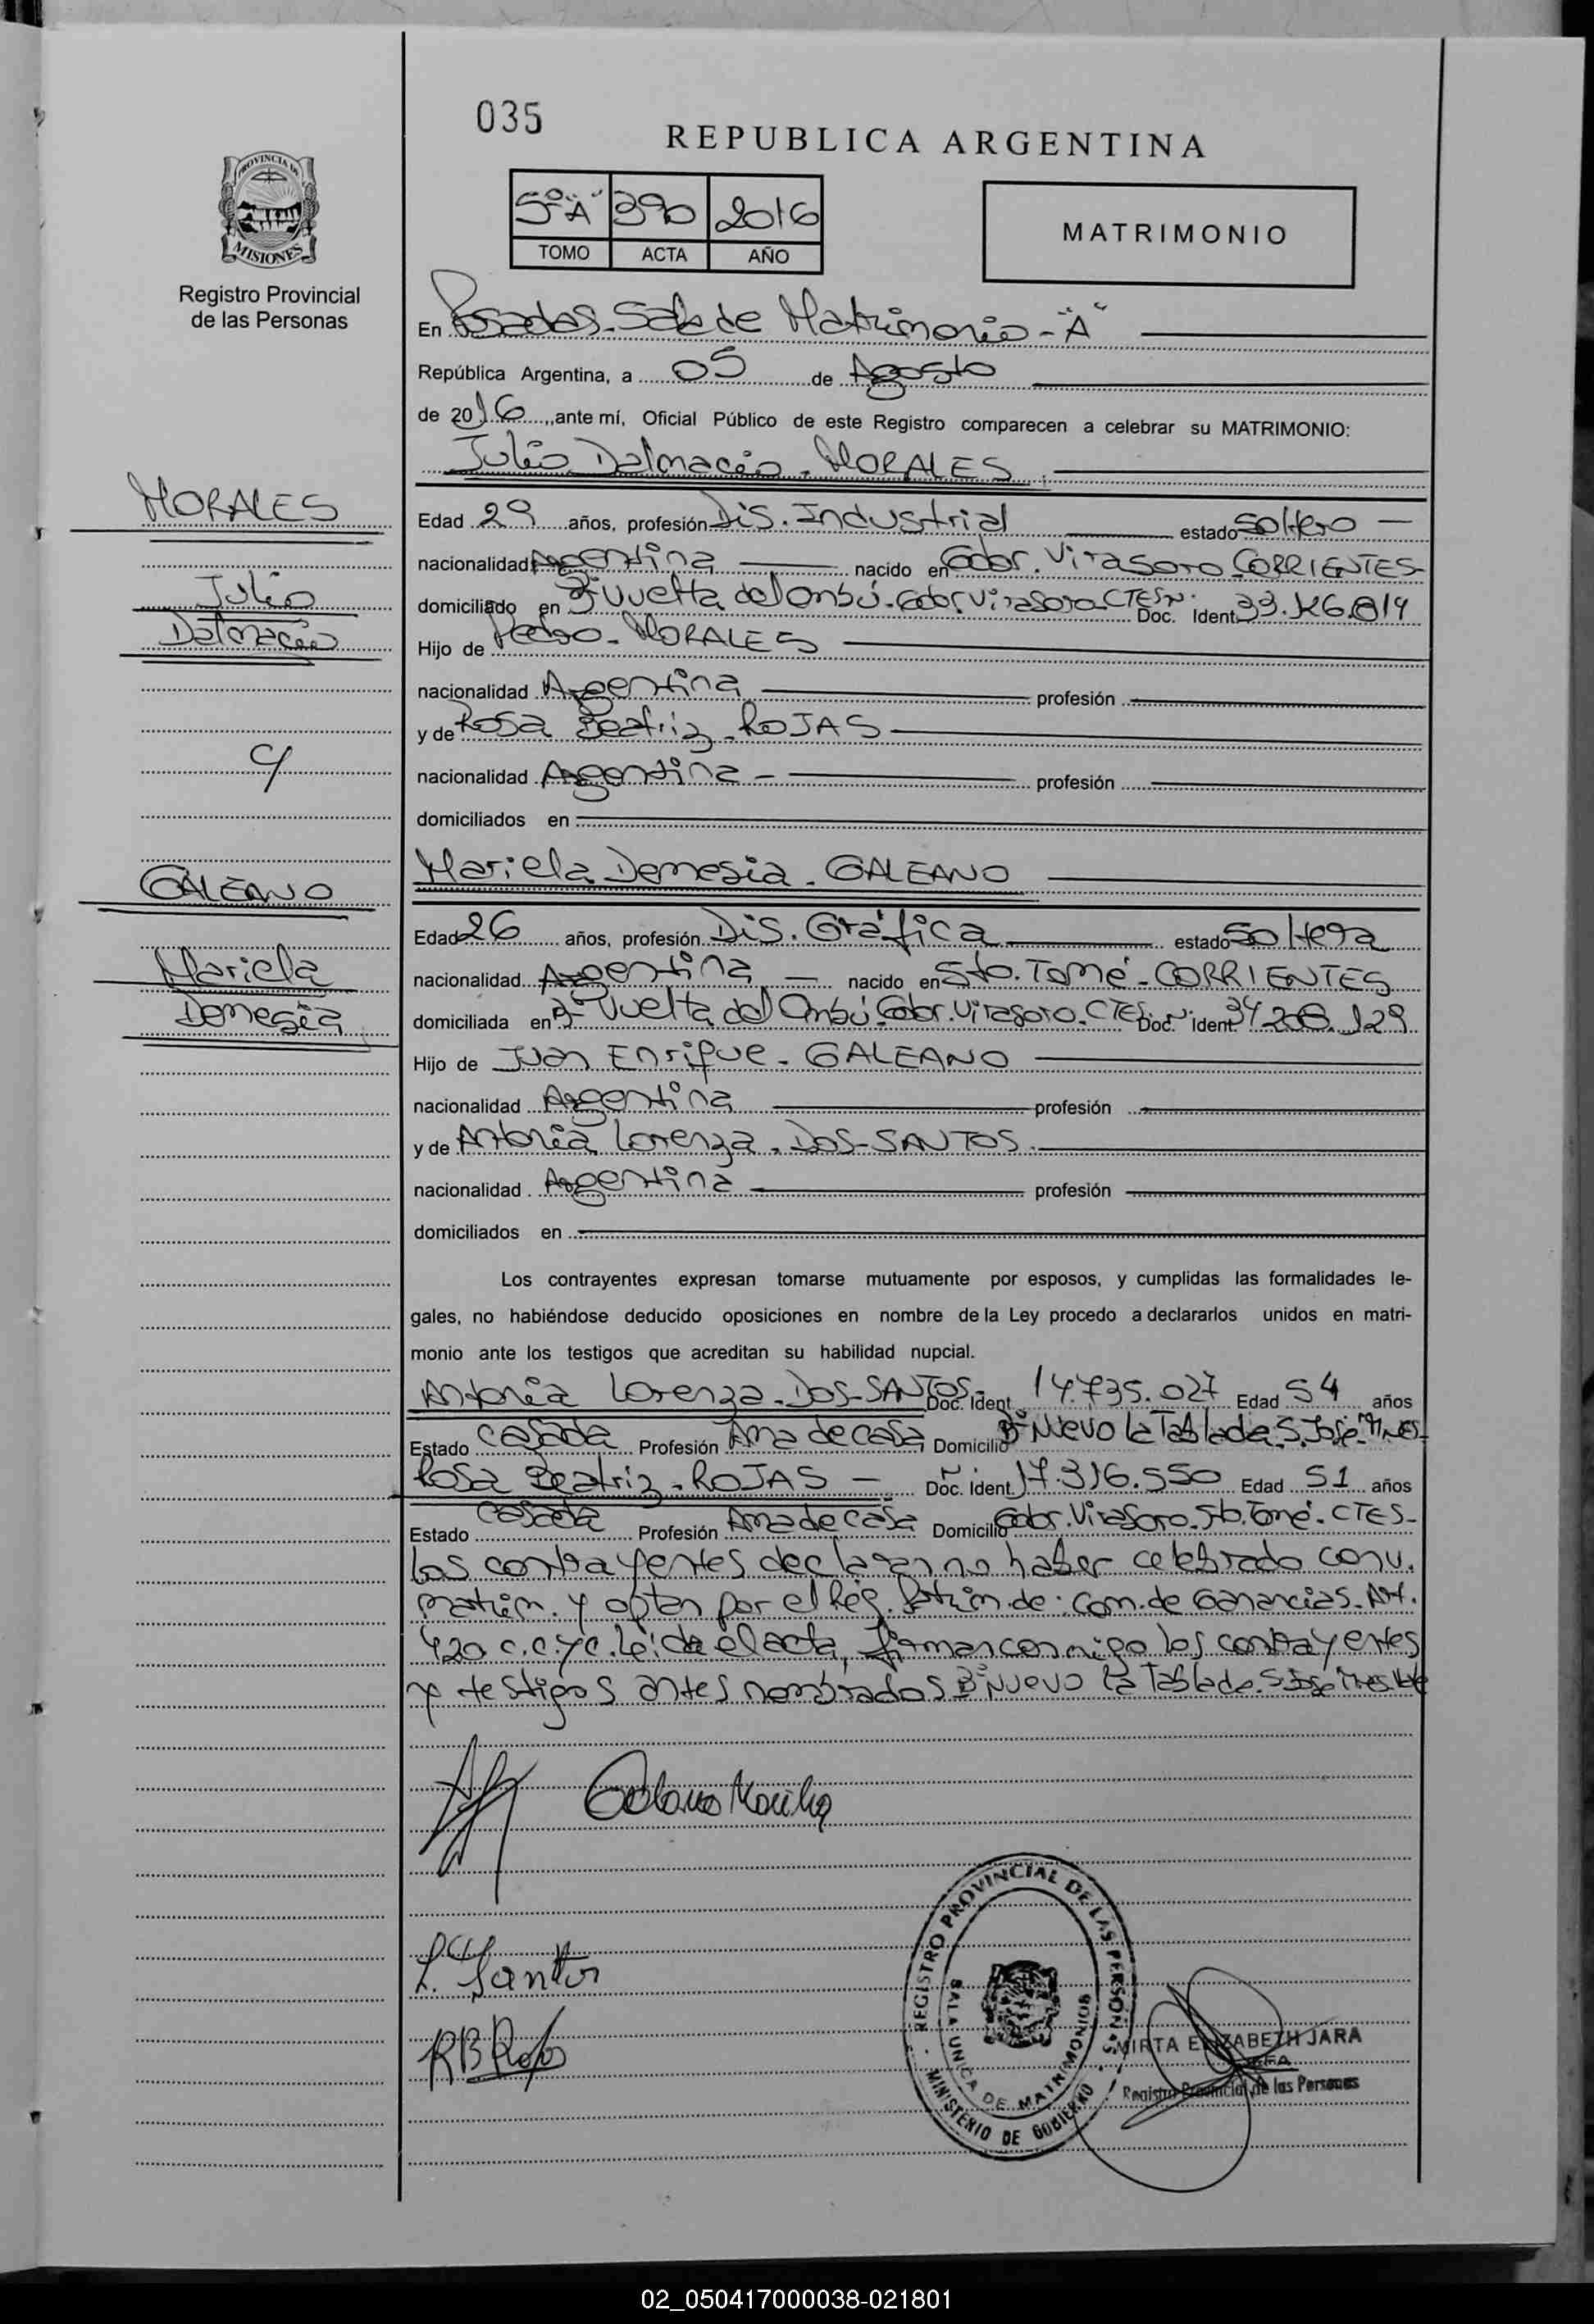 035
REPUBLICA ARGENTINA
5º "A" 390 2016
TOMO ACTA AÑO
MATRIMONIO
PROVINCIA DE
MISIONES
Registro Provincial
de las Personas
En Posadas. Sala de Matrimonio - "A"
República Argentina, a 05 de Agosto
de 2016, ante mí, Oficial Público de este Registro comparecen a celebrar su MATRIMONIO:
Julio Dalmacio. MORALES
MORALES
Julio
Dalmacio
Edad 29 años, profesión Dis. Industrial estado Soltero
nacionalidad Argentina nacido en Gdor. Virasoro CORRIENTES
domiciliado en Bº Vuelta del Ombú. Gdor. Virasoro CTES Doc. Ident. 33.126.819
Hijo de Pedro - MORALES
nacionalidad Argentina profesión
y de Rosa Beatriz. ROJAS
nacionalidad Argentina profesión
domiciliados en
c/
Mariela Demesia. GALEANO
GALEANO
Mariela
Demesia
Edad 26 años, profesión Dis. Gráfica estado Soltera
nacionalidad Argentina nacido en Sto. Tomé - CORRIENTES
domiciliada en Bº Vuelta del Ombú. Gdor. Virasoro. CTES Doc. Ident. 34.208.129
Hijo de Juan Enrique - GALEANO
nacionalidad Argentina profesión
y de Antonia Lorenza. DOS-SANTOS
nacionalidad Argentina profesión
domiciliados en
Los contrayentes expresan tomarse mutuamente por esposos, y cumplidas las formalidades le-
gales, no habiéndose deducido oposiciones en nombre de la Ley procedo a declararlos unidos en matri-
monio ante los testigos que acreditan su habilidad nupcial.
Antonia Lorenza. DOS-SANTOS Doc. Ident. 14.735.027 Edad 54 años
Estado Casada Profesión Ama de casa Domicilio Bº Nuevo la Tablada. S. José. Mnes
Rosa Beatriz. ROJAS Doc. Ident. 17.316.550 Edad 51 años
Estado Casada Profesión Ama de casa Domicilio Gdor. Virasoro. Sto. Tomé. CTES-
Los contrayentes declaran no haber celebrado conv.
matrim. y optan por el Rég. Patrim. de: Com. de Ganancias. Art.
420 c.c.yc. Leída el acta, firman conmigo los contrayentes
y testigos antes nombrados Bº Nuevo la Tablada. S. José Mnes. Vale
Galeano Mariela
L. Santos
RBRojas
REGISTRO PROVINCIAL DE LAS PERSONAS
SALA UNICA DE MATRIMONIOS
MINISTERIO DE GOBIERNO
MIRTA ELIZABETH JARA
JEFA
Registro Provincial de las Personas
02_050417000038-021801